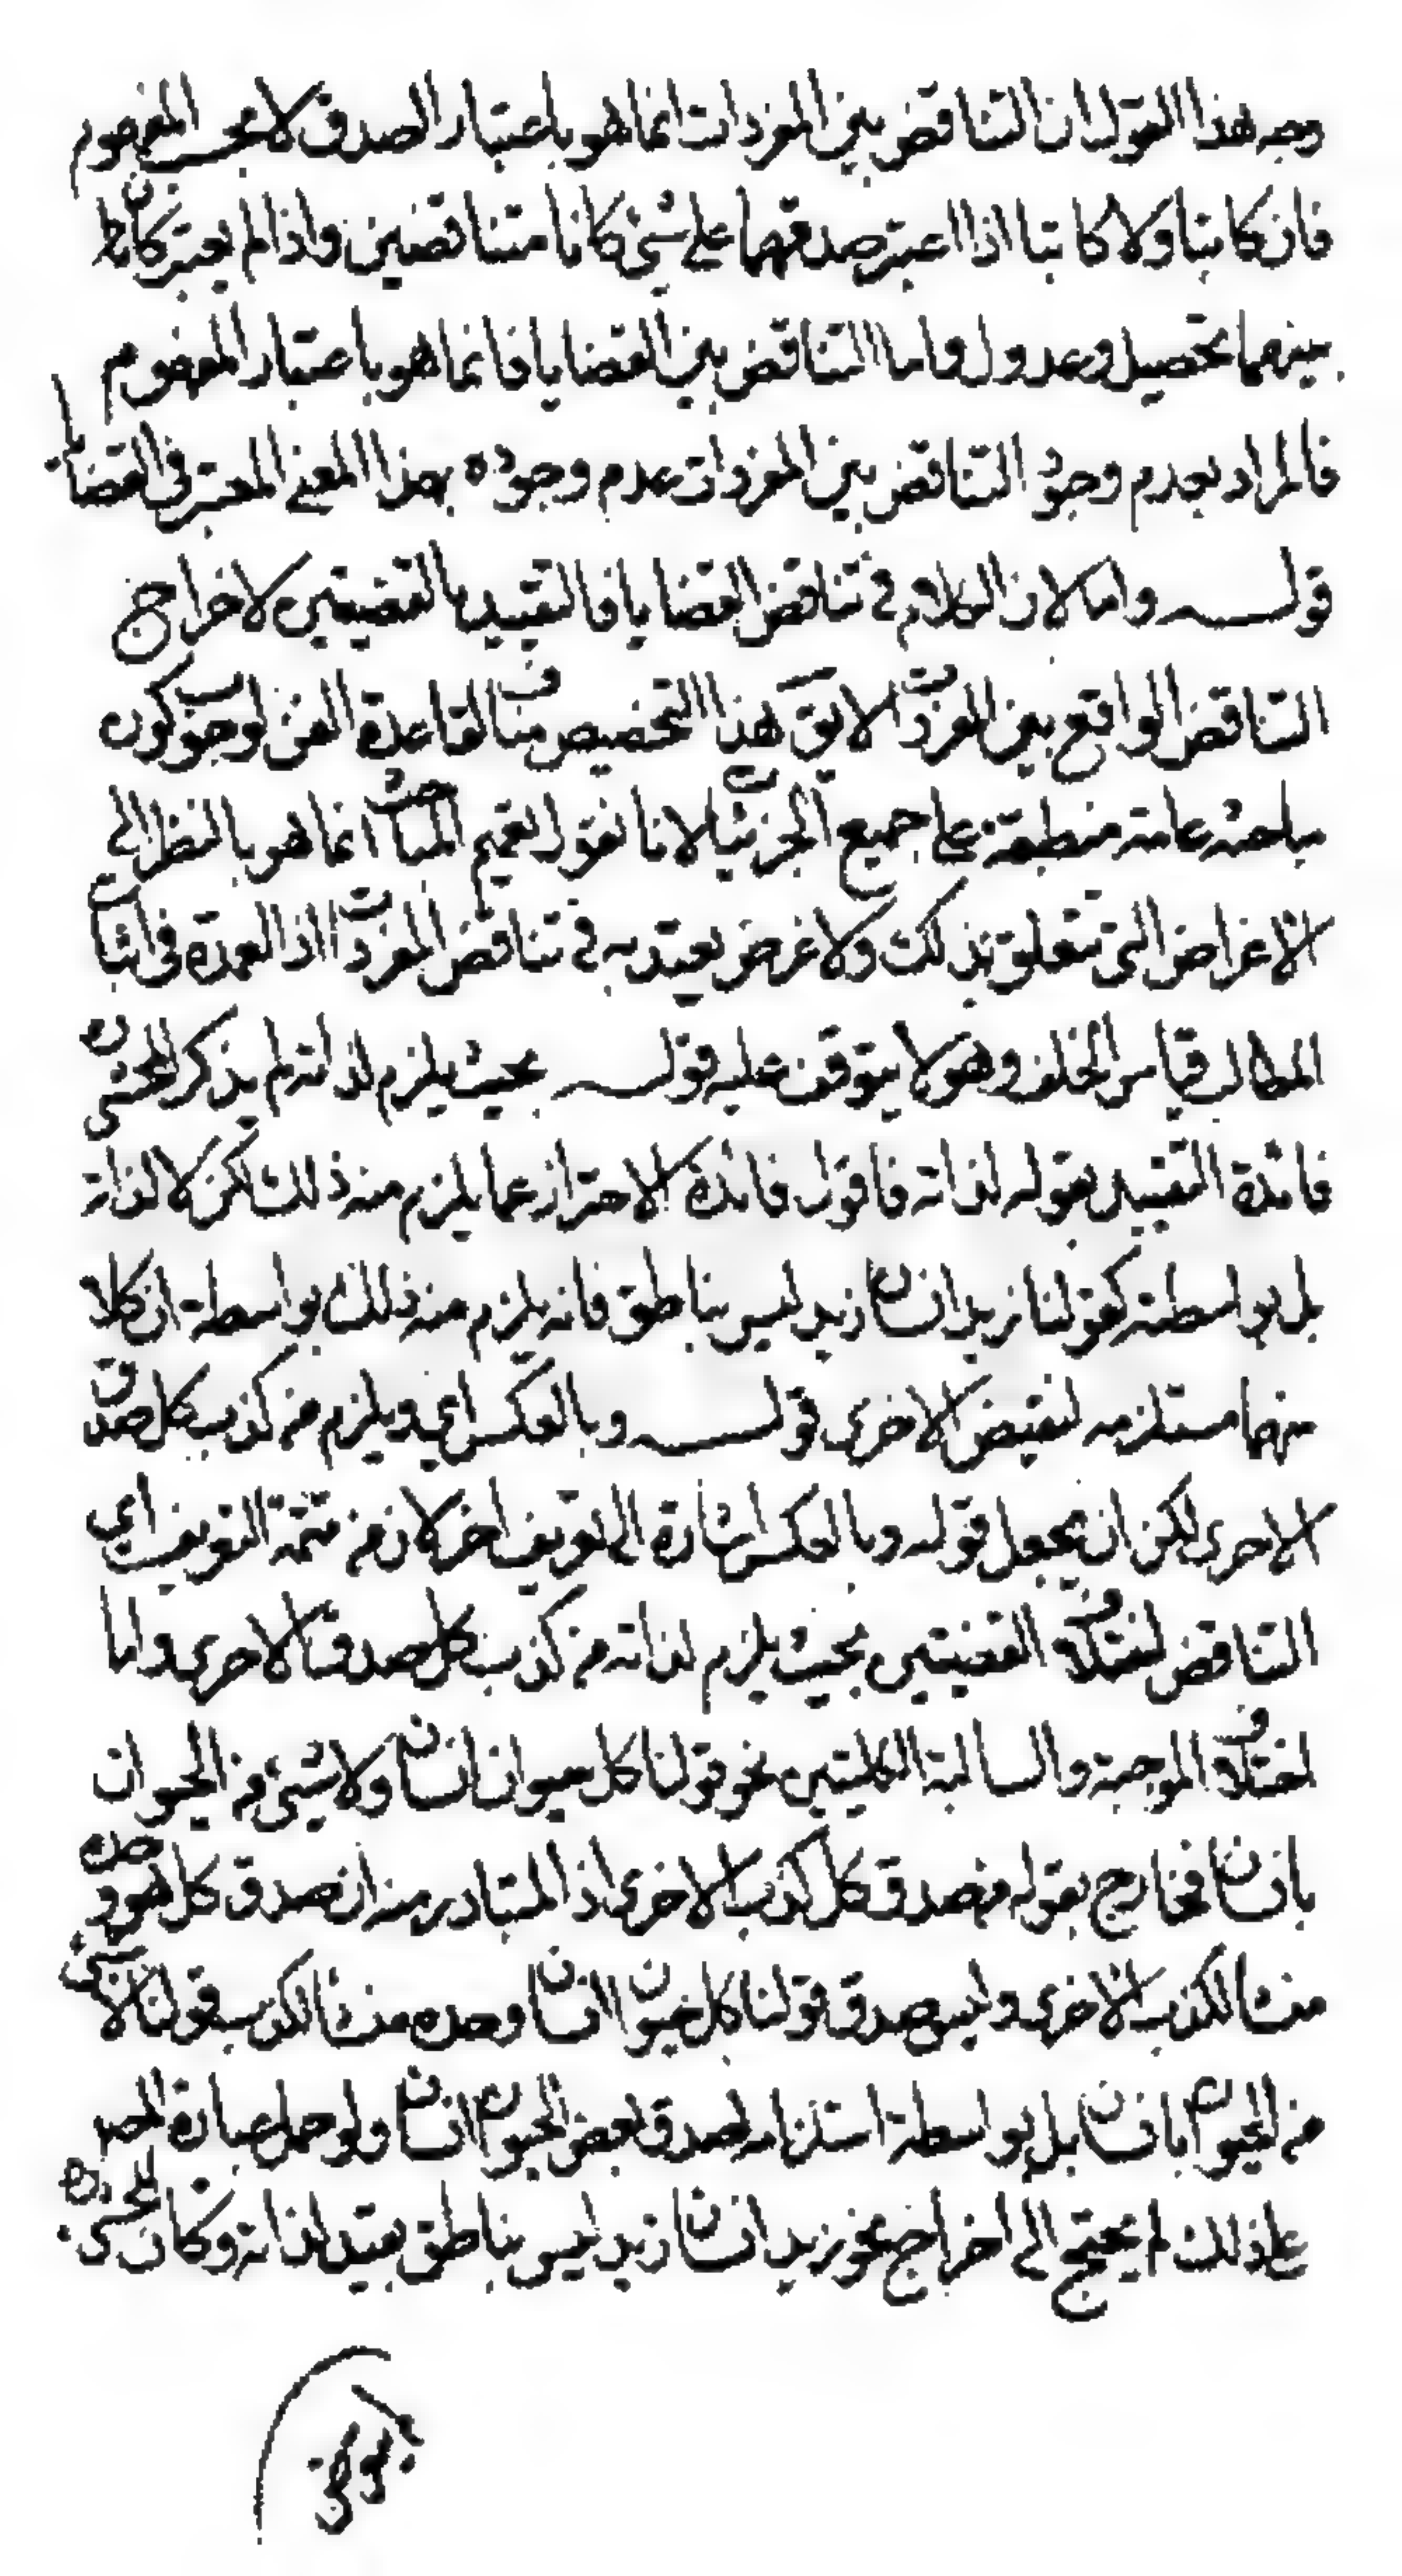 وجه هذا القول ان التناقض بين المفردات انما هو باعتبار الصدق لا بحسب المفهوم
فان كاتبا ولا كاتبا اذا اعتبر صدقهما على شيء كانا متناقضين واذا لم يعتبر كان
بينهما تحصيل وعدول واما التناقض بين القضايا فانما هو باعتبار المفهوم
فالمراد بعدم وجود التناقض بين المفردات عدم وجوده بهذا المعنى المعتبر في القضايا
قوله واما لان الكلام في تناقض القضايا فالتقييد بالقضيتين لاخراج
التناقض الواقع بين المفردات لا يق هذا التخصيص مناف لقاعدة الفن لوجوب كون
مباحثه عامة منطبقة على جميع الجزئيات لانا نقول تعميم المباحث انما هو بالنظر الى
الاغراض التي تتعلق بذلك ولا غرض يعتد به في تناقض المفردات اذ العمدة في اثبات
المطالب قياس الخلف وهو لا يتوقف عليه قوله بحيث يلزم لذاته لم يذكر المحشي ره
فائدة التقييد بقوله لذاته فاقول فائدة الاحتراز عما يلزم منه ذلك لكن لا لذاته
بل بواسطة كقولنا زيد انسان زيد ليس بناطق فانه يلزم منه ذلك بواسطة ان كلا
منهما مستلزمه لنقيض الاخرى قوله وبالعكس اي ويلزم من كذب كل صدق
الاخرى لكن ان يجعل قوله وبالعكس اشارة الى تعريف اخر لا ان من تتمة التعريف اي
التناقض اختلاف القضيتين بحيث يلزم لذاته من كذب كل صدق الاخرى واما
اختلاف الموجبة والسالبة الكليتين نحو قولنا كل حيوان انسان ولا شيء من الحيوان
بانسان فخارج بقوله من صدق كل كذب الاخرى اذ المتبادر منه ان صدق كل هو وحده
منشأ لكذب الاخرى وليس صدق قولنا كل حيوان انسان وحده منشأ لكذب قولنا لا شيء
من الحيوان بانسان بل بواسطة استلزامه لصدق بعض الحيوان انسان ولو حمل عبارة المصـ
على ذلك لم يحتج الى اخراج نحو زيد انسان زيد ليس بناطق بقيد لذاته وكان المحشي ره